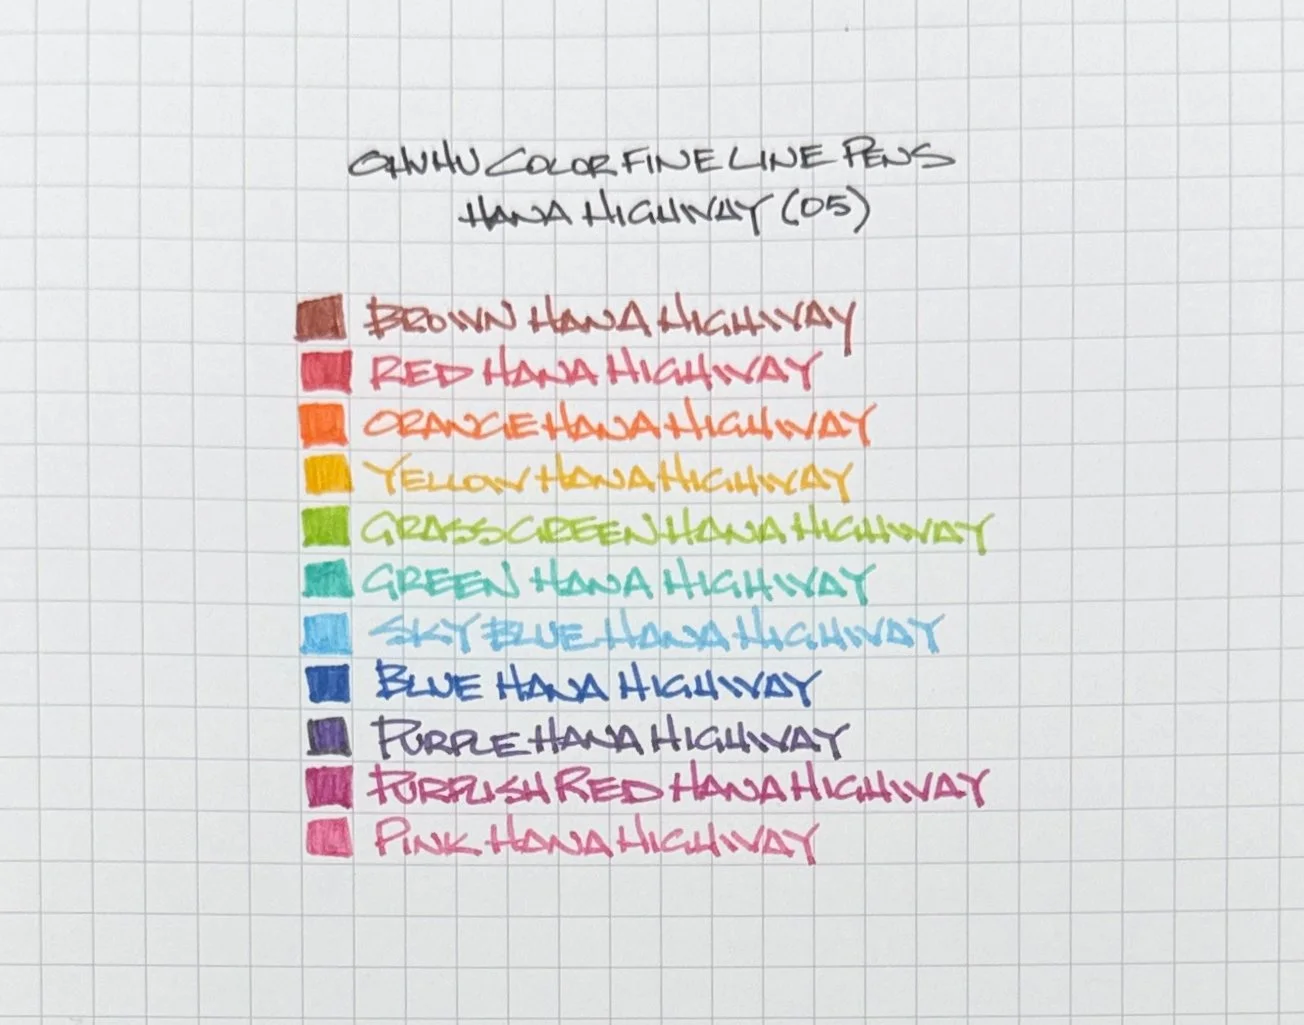 OHUHU COLOR FINE LINE PENS
HANA HIGHWAY (05)
BROWN HANA HIGHWAY
RED HANA HIGHWAY
ORANGE HANA HIGHWAY
YELLOW HANA HIGHWAY
GRASS GREEN HANA HIGHWAY
GREEN HANA HIGHWAY
SKY BLUE HANA HIGHWAY
BLUE HANA HIGHWAY
PURPLE HANA HIGHWAY
PURPLISH RED HANA HIGHWAY
PINK HANA HIGHWAY